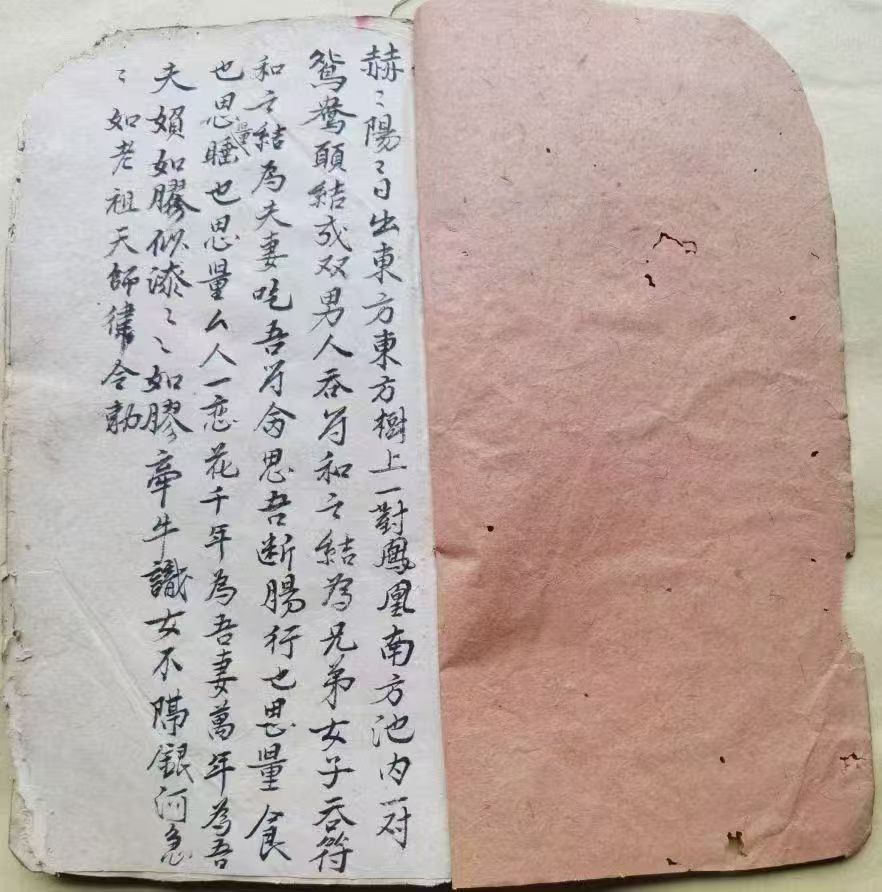 赫〻陽〻日出東方東方樹上一對鳳凰南方池内一对
鴛鴦願結成双男人吞符和合結為兄弟女子吞符
和合結為夫妻吃吾符肉思吾断腸行也思量食
也思量睡也思量么人一恋花千年為吾妻萬年為吾
夫嬪如膠似漆〻〻如膠牽牛識女不隔銀河急
〻如老祖天師律令勅